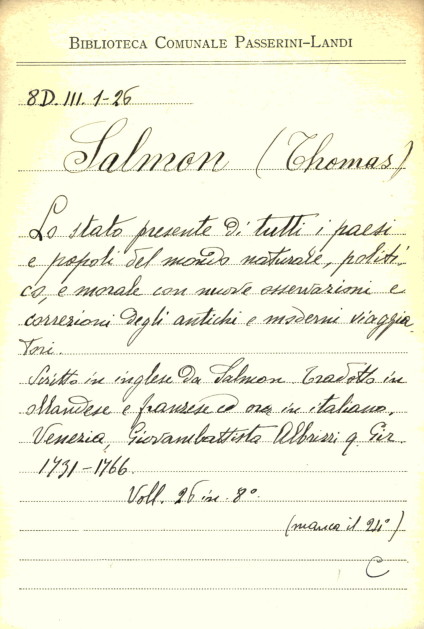 BIBLIOTECA COMUNALE PASSERINI-LANDI
8D. III. 1-26
Salmon (Thomas)
Lo stato presente di tutti i paesi
e popoli del mondo naturale, politi-
co, e morale con nuove osservazioni e
correzioni degli antichi e moderni viaggia
tori.
Scritto in inglese da Salmon Tradotto in
ollandese e franzese ed ora in italiano.
Venezia, Giovambattista Albrizzi q. Gir.
1731-1766.
Voll. 26 in 8°
(manca il 24°)
C